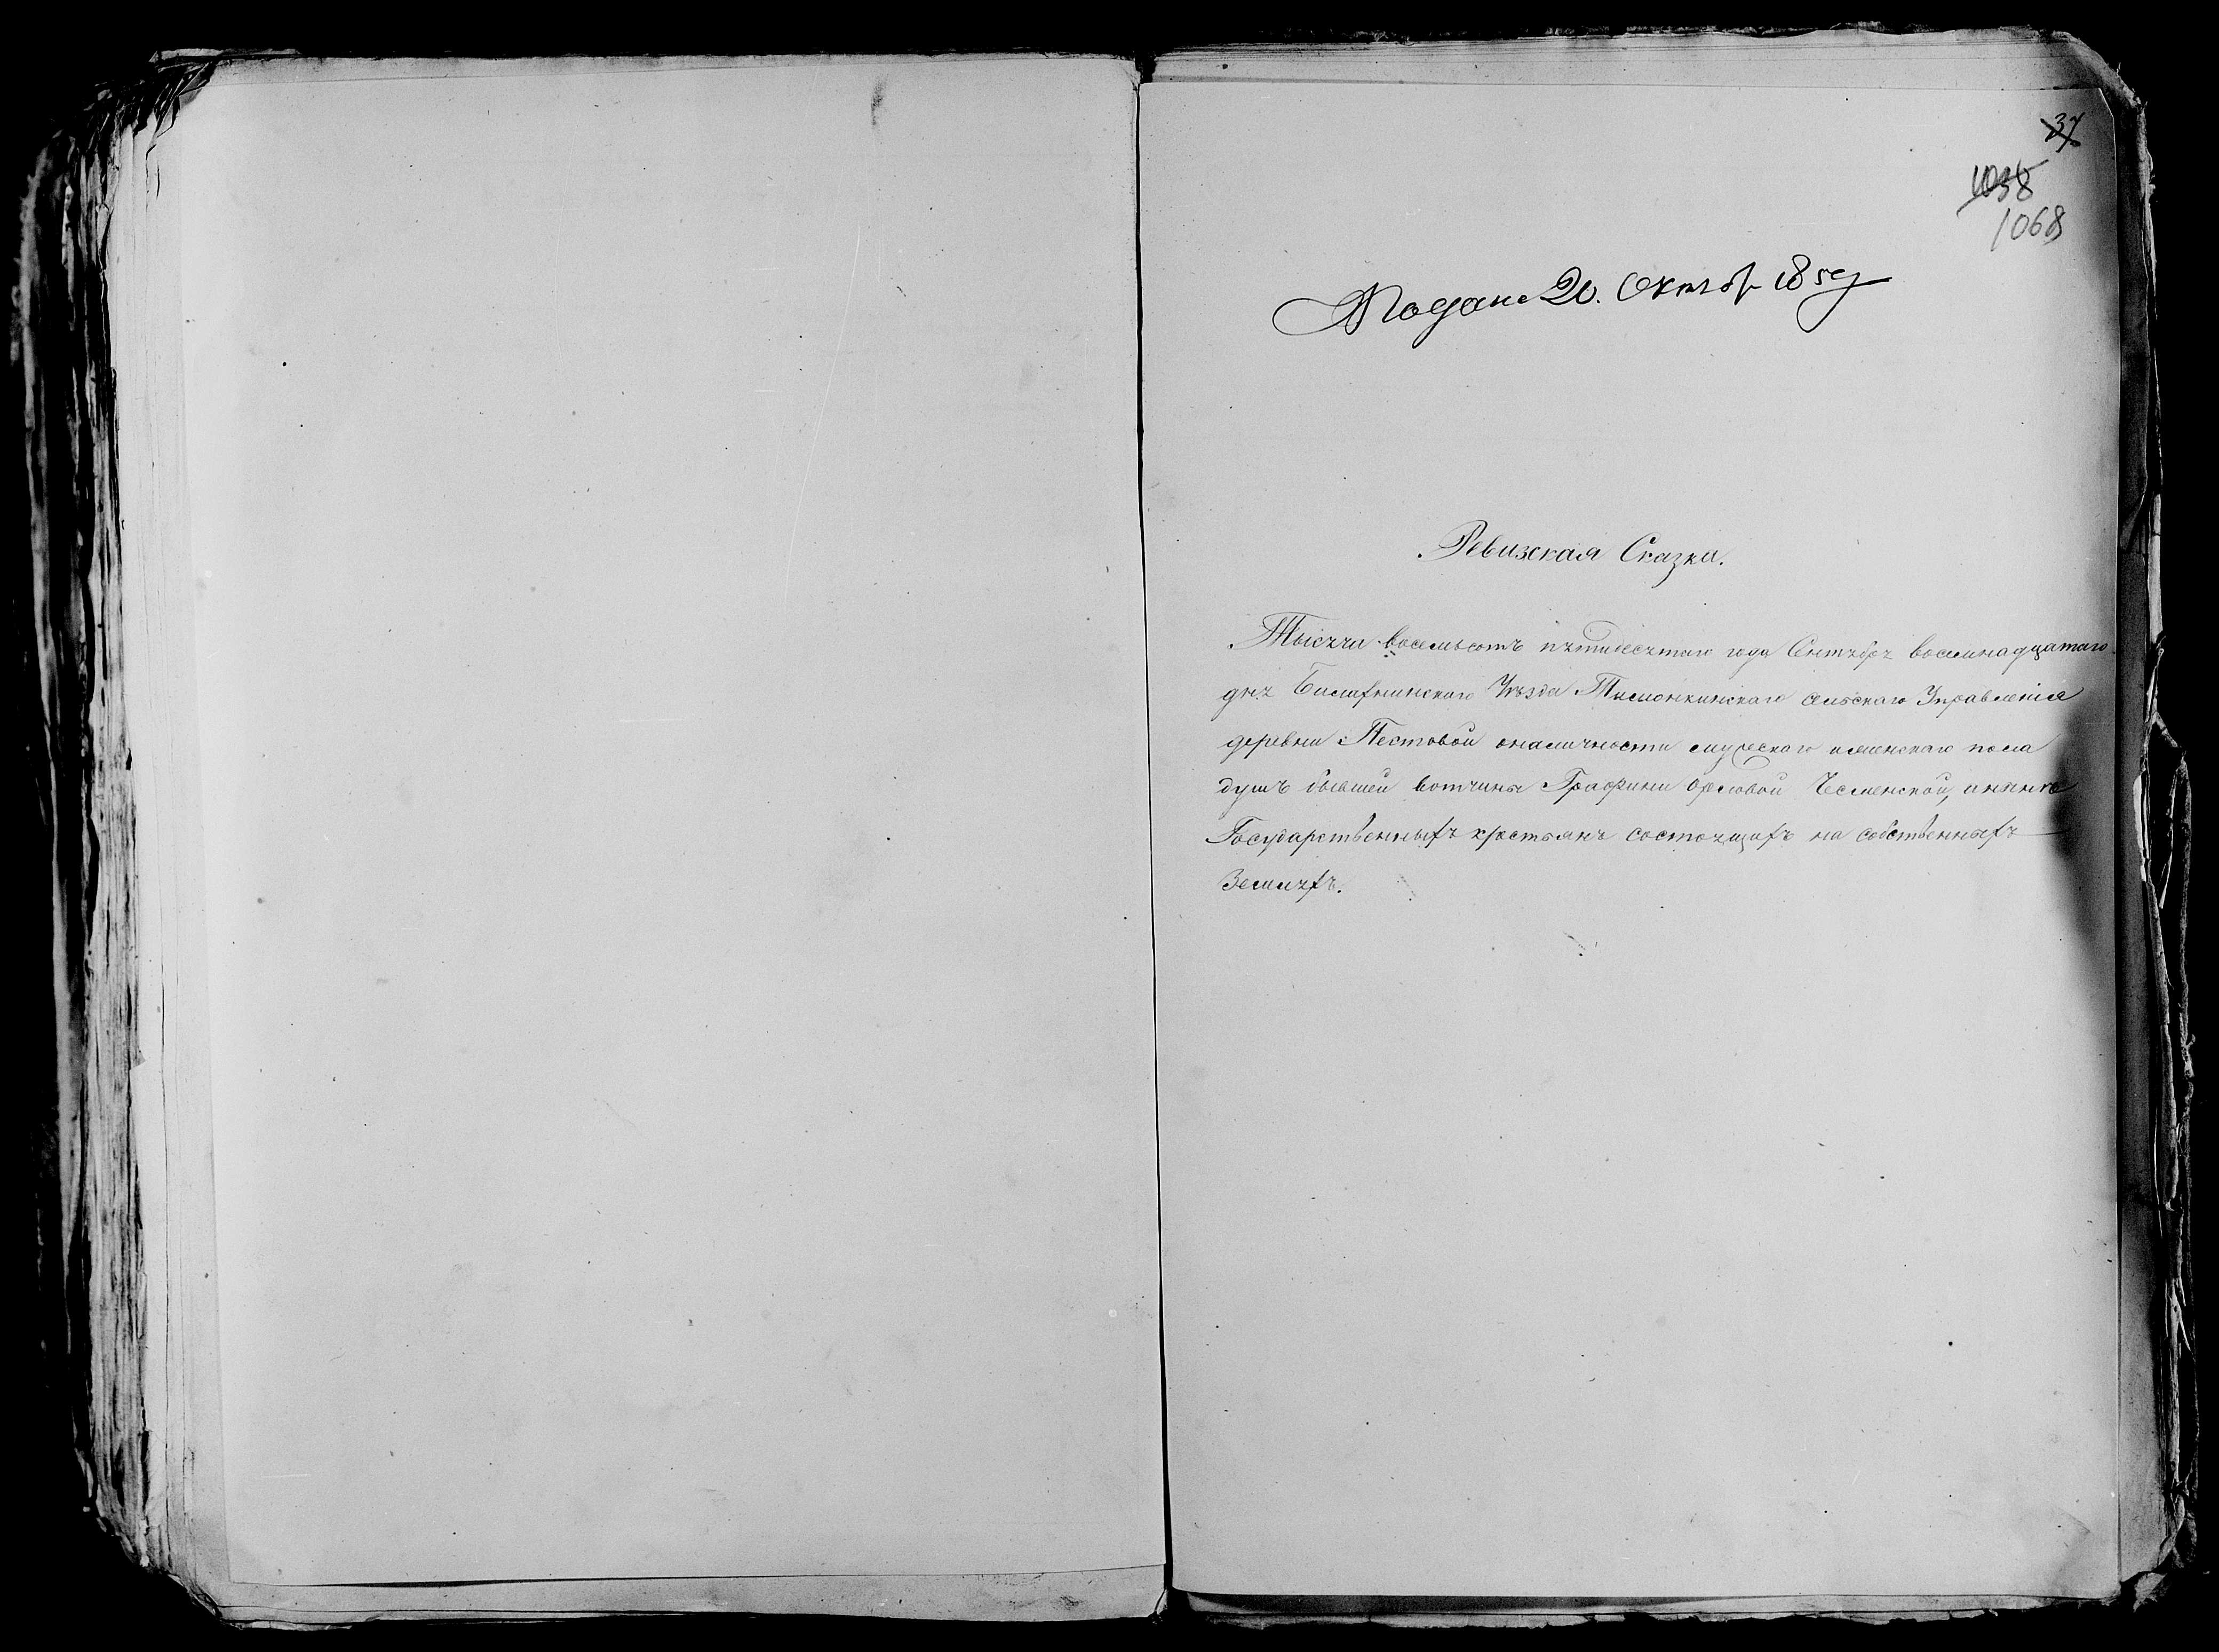 37
1038
1068
Подана 20. Октяб 1850
Ревизская Сказка.
Тысяча восемьсотъ пятидесятаго года Сентября восемнадцатаго
дня Балахнинскаго Уѣзда сельскаго Управленія
деревни Пестовой оналичности мужескаго иженскаго пола
душъ бывшей вотчины Графини Орловой Чесменской, анынѣ
Государственныхъ крестьянъ состоящихъ на собственныхъ
Земляхъ.